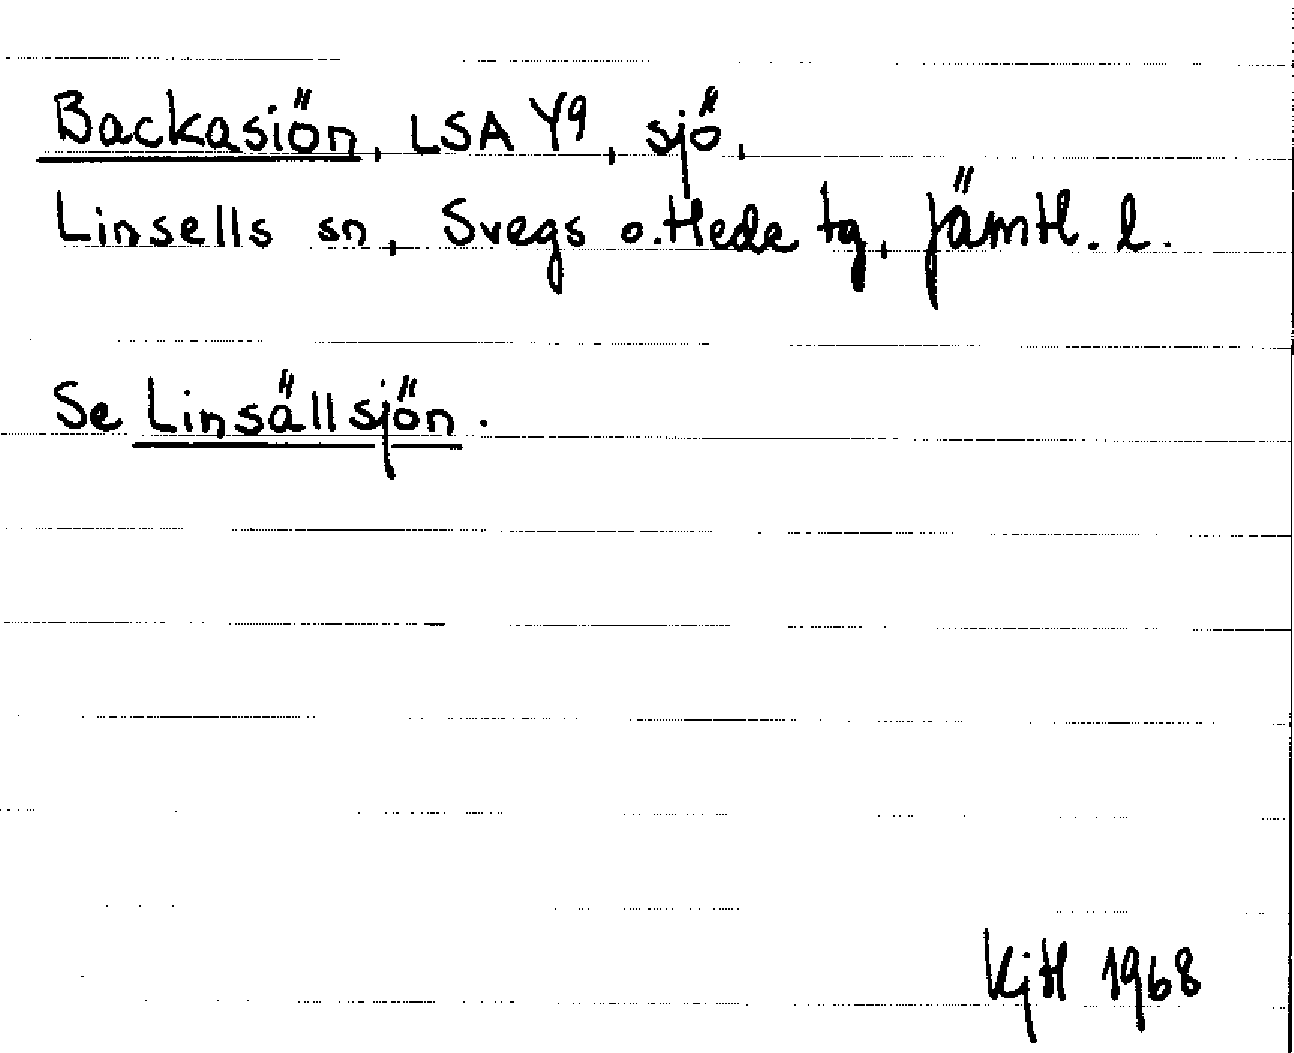 Backasiön, LSA Y9, sjö,
Linsells sn, Svegs o. Hede tg, Jämtl. l.
Se Linsällsjön.
KjH 1968